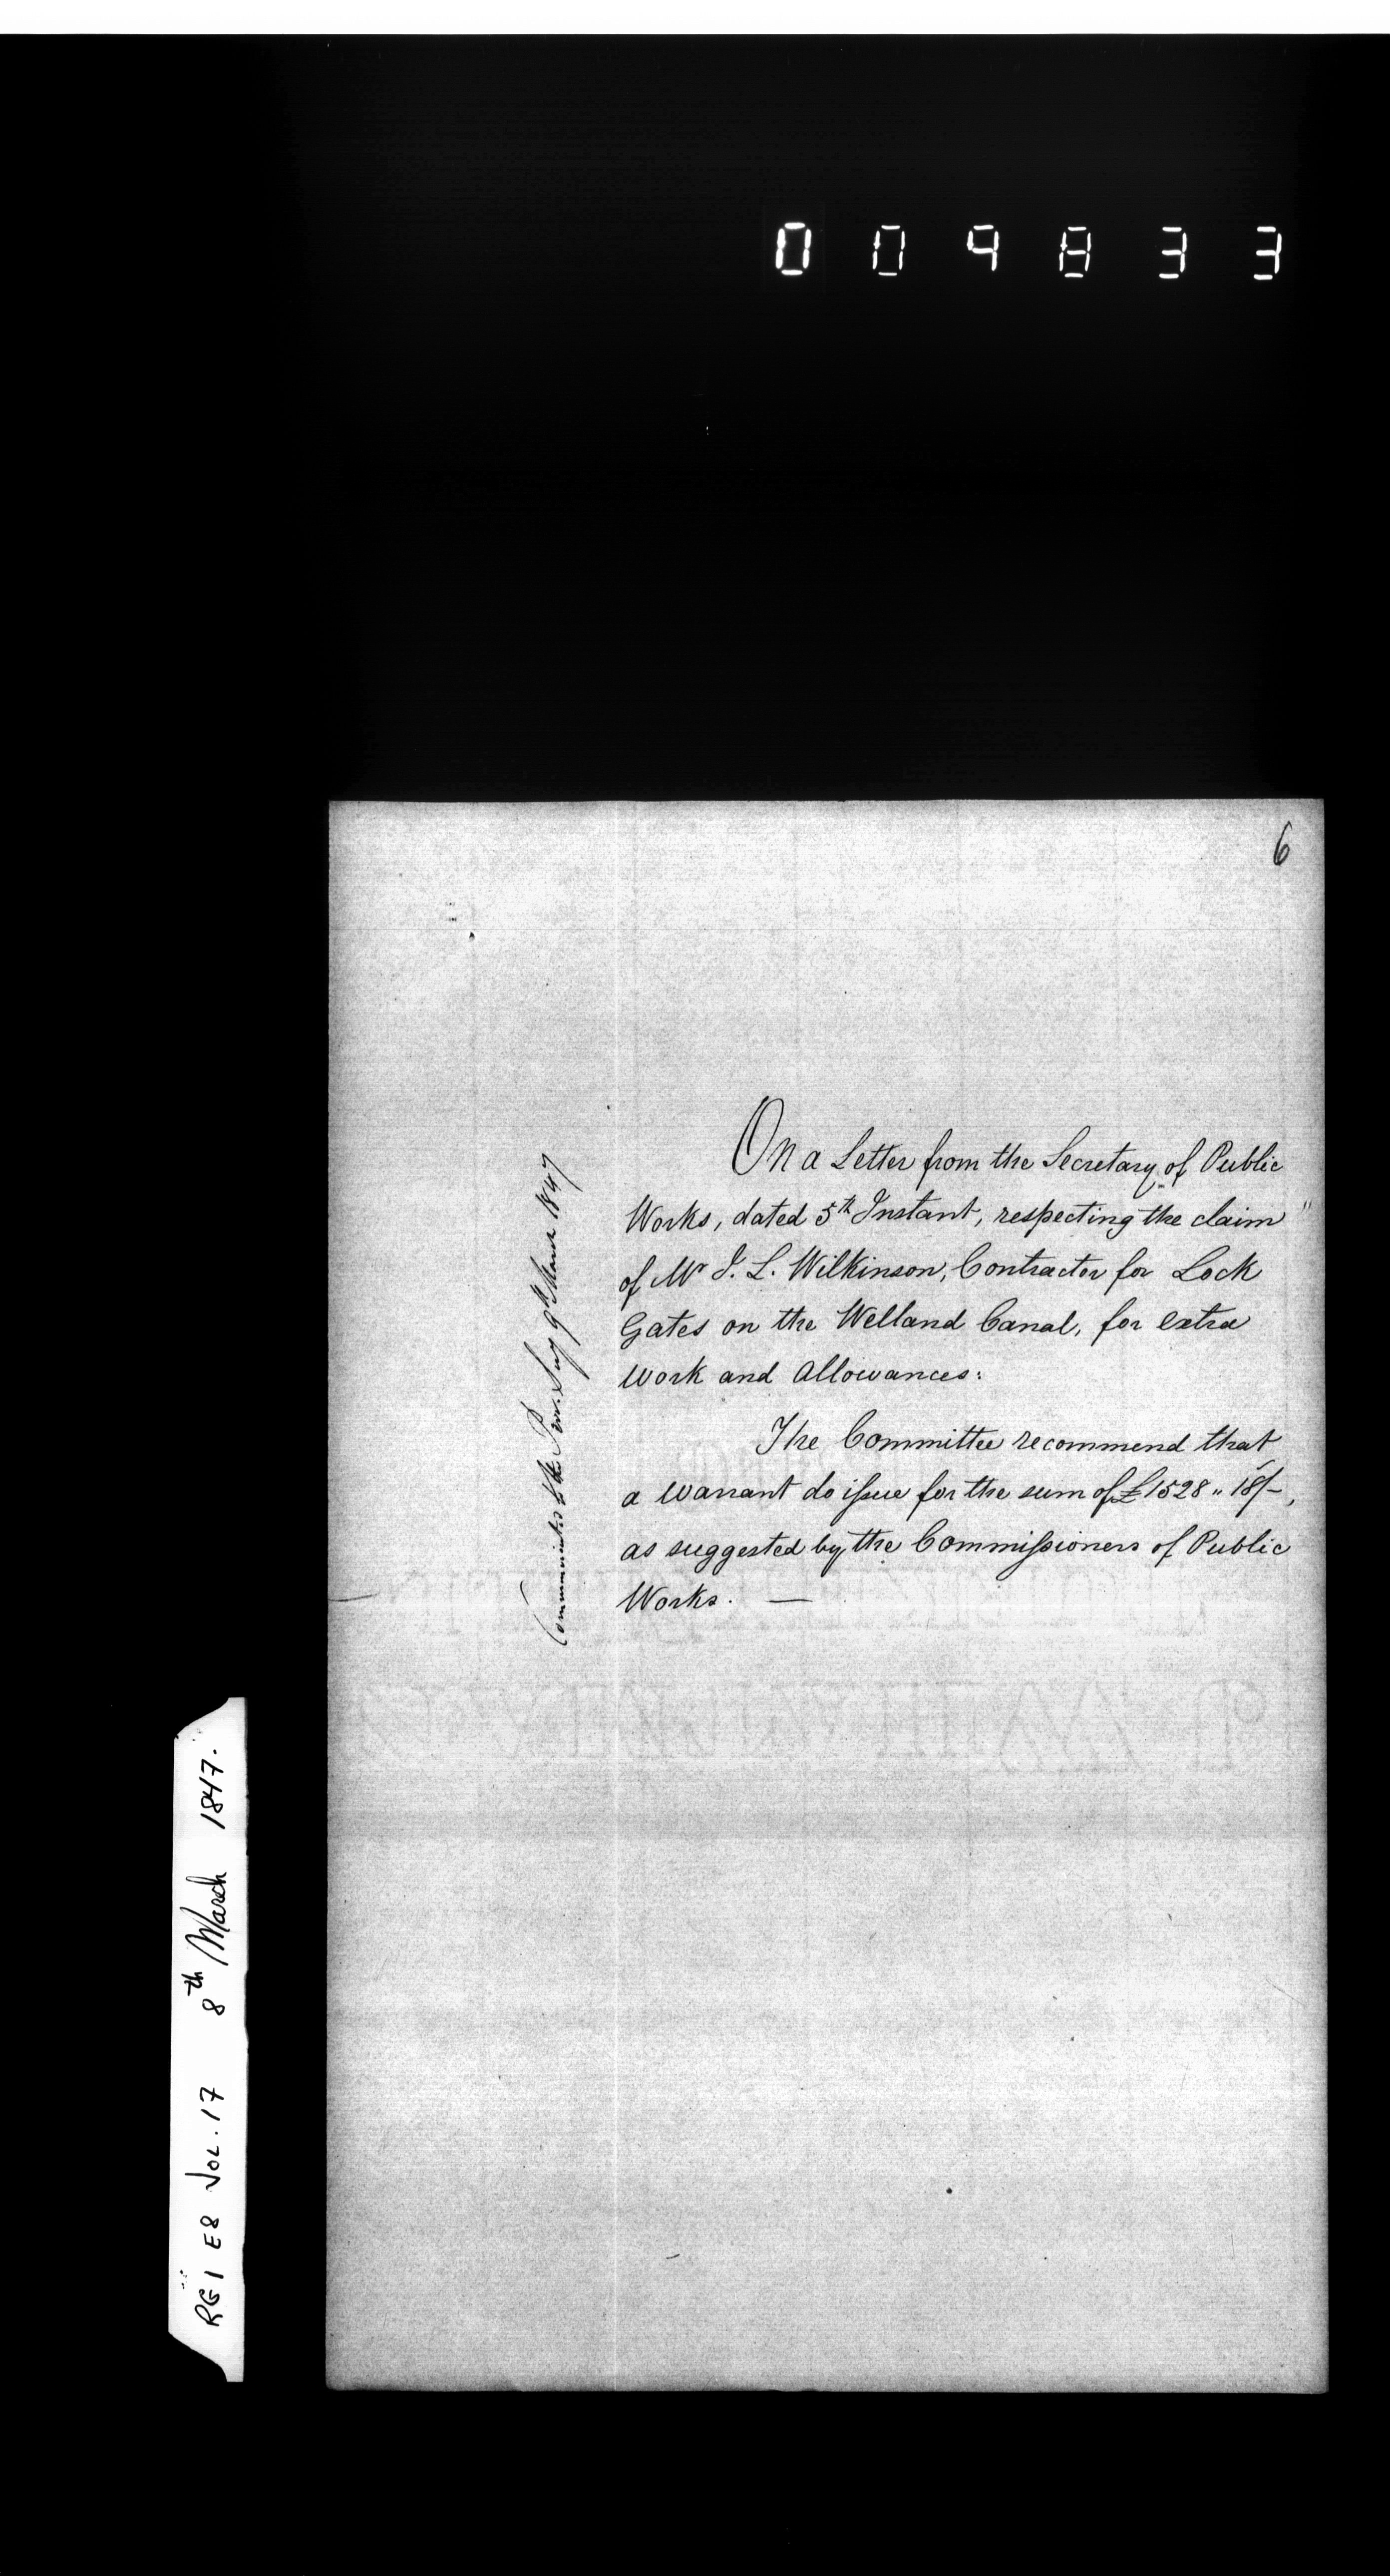 009833
6
On a Letter from the Secretary of Public
Works, dated 5th Instant, respecting the claim "
of Mr J. L. Wilkinson, Contractor for Lock
Gates on the Welland Canal, for extra
work and allowances:
The Committee recommend that
a warrant do issue for the sum of £1528 " 18/-,
as suggested by the Commissioners of Public
Works. —
to the Prov. Secy 9th March 1847
RG 1 E8 VOL. 17 8th March 1847.